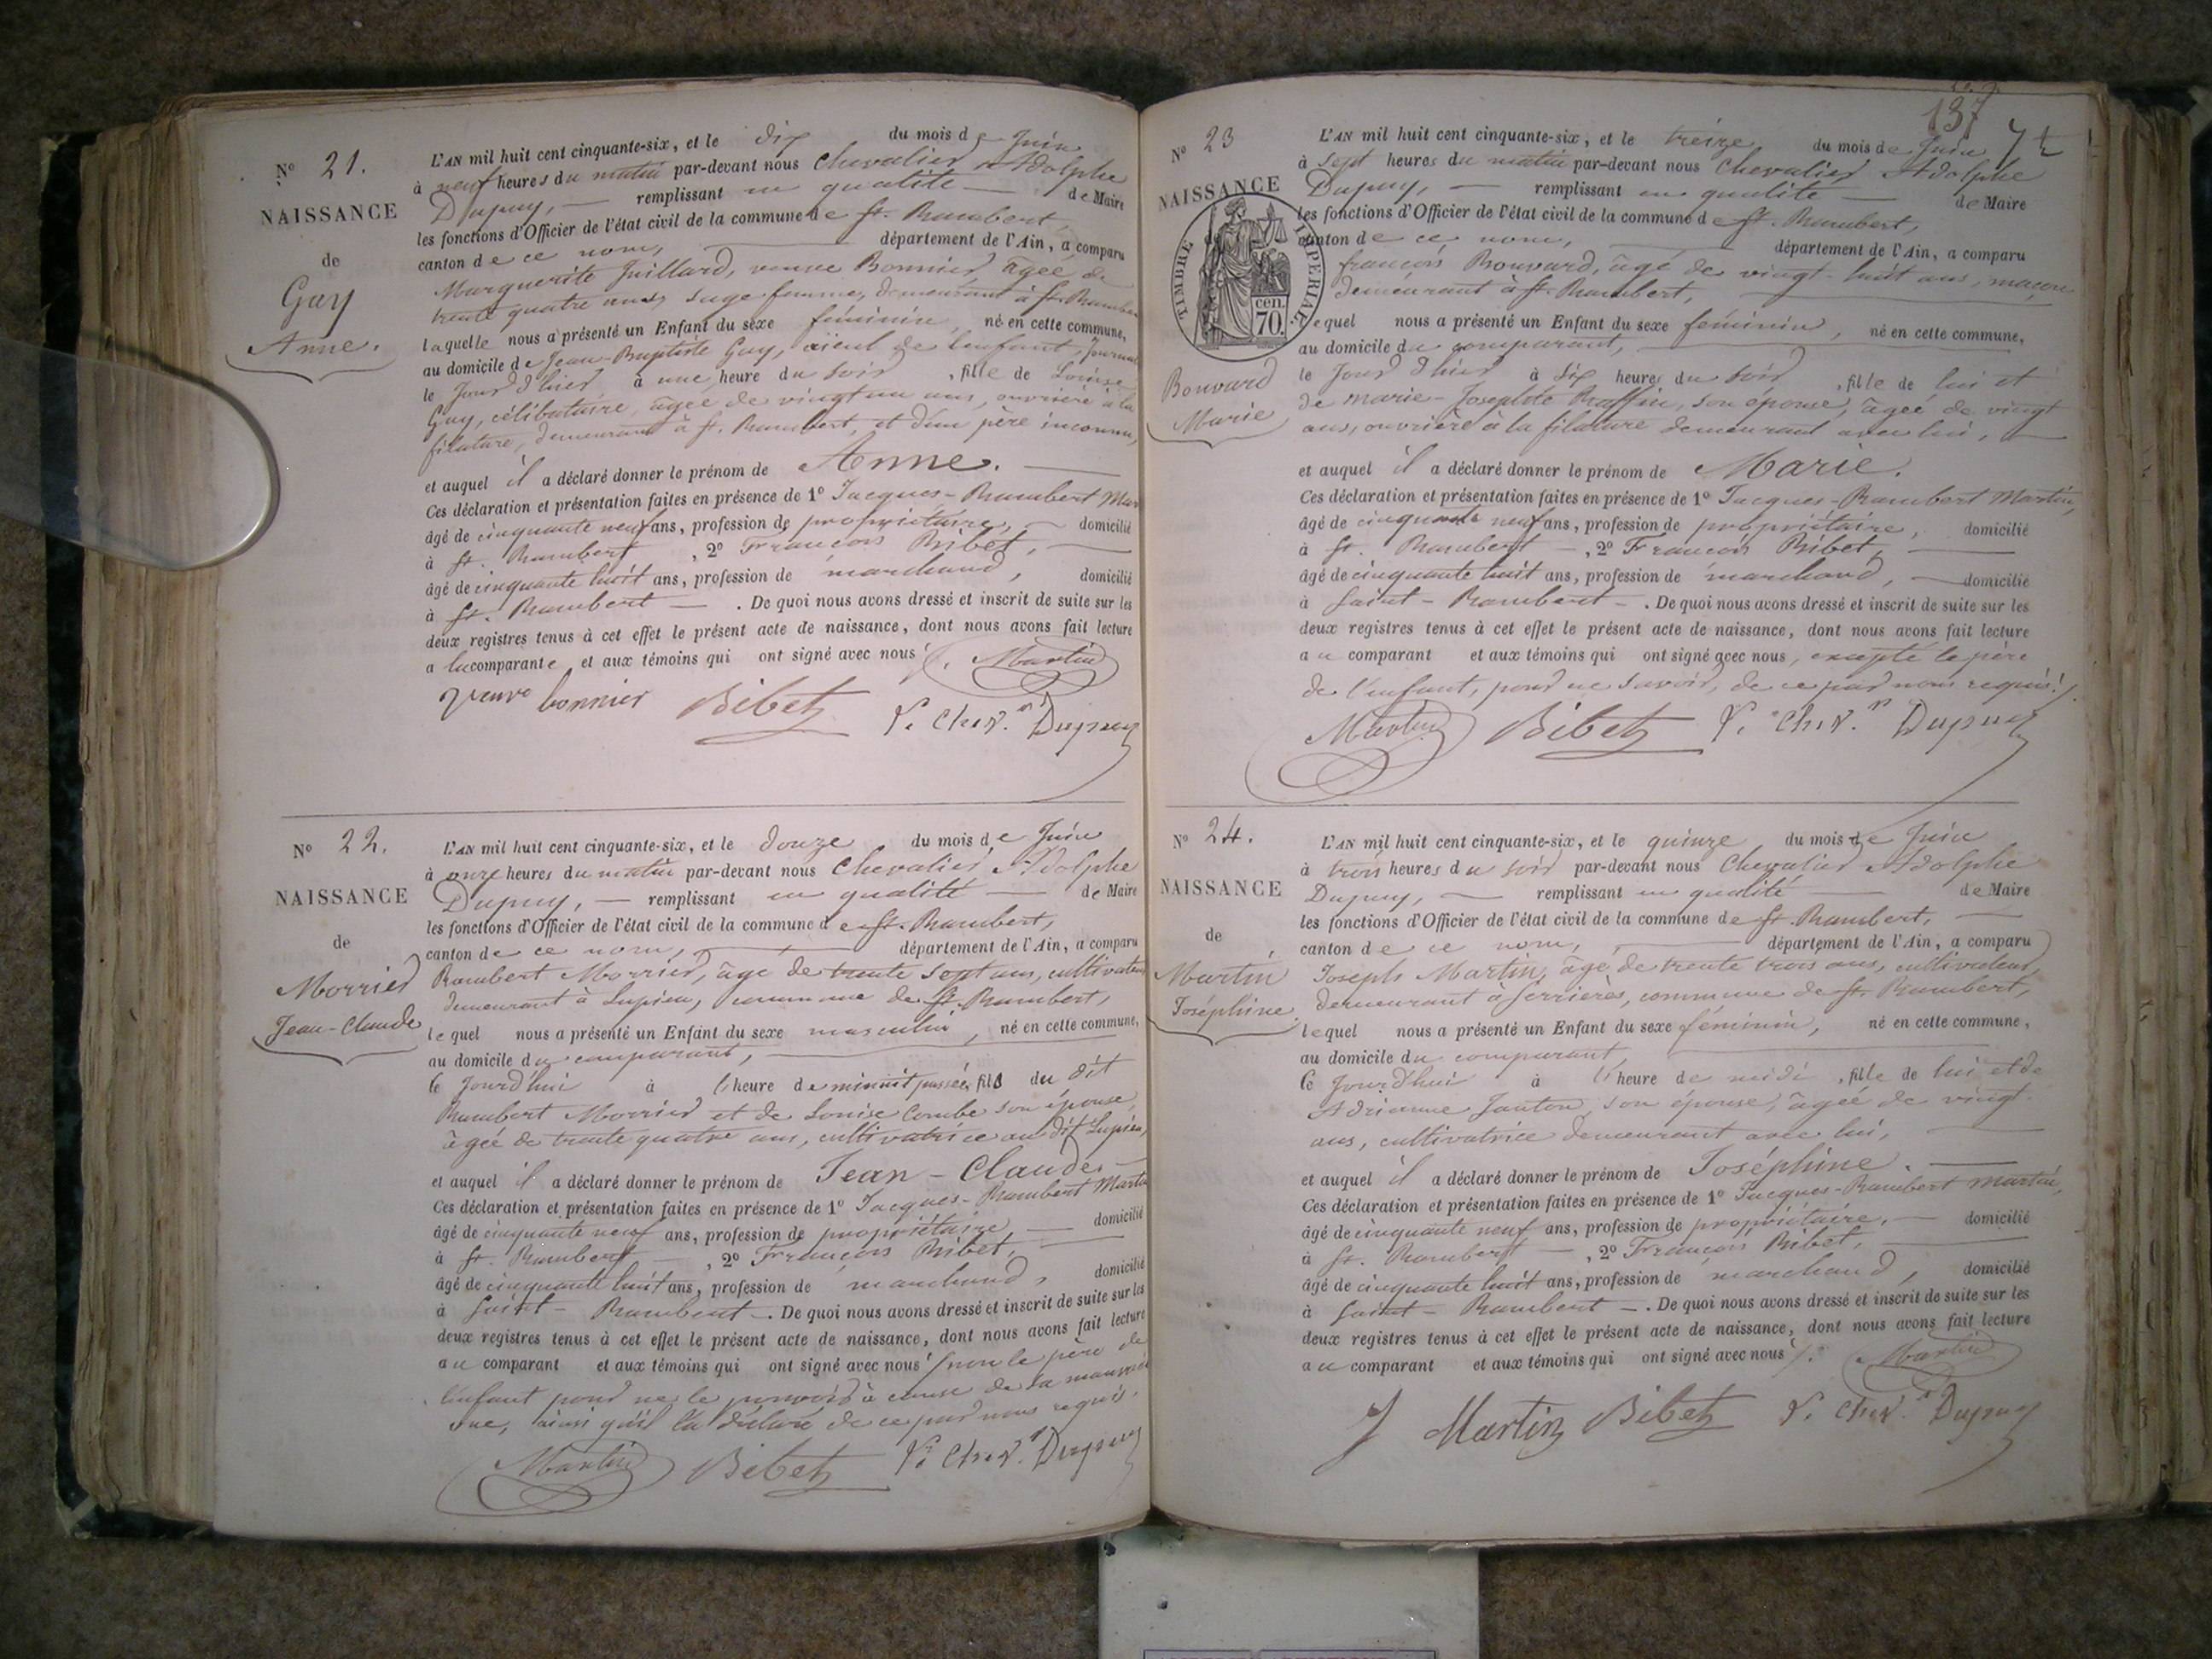 N° 21.
NAISSANCE
de
Guy
Anne.
L'AN mil huit cent cinquante-six, et le dix du mois de Juin
à neuf heures du matin par-devant nous Chevalier Adolphe
Dupuy, — remplissant en qualité — de Maire
les fonctions d'Officier de l'état civil de la commune de St. Rambert,
canton de ce nom, département de l'Ain, a comparu
Marguerite Juillard, veuve Bonnier, âgée de
trente quatre ans, sage femme, demeurant à St. Rambert
laquelle nous a présenté un Enfant du sexe féminin, né en cette commune,
au domicile de Jean-Baptiste Guy, aïeul de l'enfant,
le Jour d'hier à une heure du soir, fille de Louise
Guy, célibataire, âgée de vingt un ans, ouvrière à la
filature, demeurant à St. Rambert, et d'un père inconnu,
et auquel il a déclaré donner le prénom de Anne. —
Ces déclaration et présentation faites en présence de 1° Jacques-Rambert Mar
âgé de cinquante neuf ans, profession de propriétaire, — domicilié
à St. Rambert, 2° François Bibet, —
âgé de cinquante huit ans, profession de marchand, domicilié
à St. Rambert — . De quoi nous avons dressé et inscrit de suite sur les
deux registres tenus à cet effet le présent acte de naissance, dont nous avons fait lecture
a la comparante, et aux témoins qui ont signé avec nous. Martin
veuve bonnier Bibet Chev. Dupuy
N° 22.
NAISSANCE
de
Morrier
Jean-Claude
L'AN mil huit cent cinquante-six, et le douze du mois de Juin
à onze heures du matin par-devant nous Chevalier Adolphe
Dupuy, — remplissant en qualité — de Maire
les fonctions d'Officier de l'état civil de la commune de St. Rambert,
canton de ce nom, département de l'Ain, a comparu
Rambert Morrier, âgé de trente sept ans, cultivateur
demeurant à Lupieu, commune de St. Rambert,
lequel nous a présenté un Enfant du sexe masculin, né en cette commune,
au domicile du comparant,
ce Jourd'hui à l'heure de minuit passée, fils du dit
Rambert Morrier et de Louise Combe son épouse,
âgée de trente quatre ans, cultivatrice au dit Lupieu,
et auquel il a déclaré donner le prénom de Jean-Claude. —
Ces déclaration et présentation faites en présence de 1° Jacques-Rambert Martin
âgé de cinquante neuf ans, profession de propriétaire — domicilié
à St. Rambert —, 2° François Bibet, —
âgé de cinquante huit ans, profession de marchand, domicilié
à Saint-Rambert —. De quoi nous avons dressé et inscrit de suite sur les
deux registres tenus à cet effet le présent acte de naissance, dont nous avons fait lecture
au comparant et aux témoins qui ont signé avec nous non le père de
l'enfant pour ne le pouvoir à cause de sa mauvaise
vue, ainsi qu'il l'a déclaré de ce par nous requis.
Martin Bibet Chev. Dupuy
137
N° 23
NAISSANCE
de
TIMBRE IMPERIAL
70 cen.
Bouvard
Marie
L'AN mil huit cent cinquante-six, et le treize du mois de Juin
à sept heures du matin par-devant nous Chevalier Adolphe
Dupuy, — remplissant en qualité — de Maire
les fonctions d'Officier de l'état civil de la commune de St. Rambert,
canton de ce nom, département de l'Ain, a comparu
françois Bouvard, âgé de vingt-huit ans, maçon
demeurant à St. Rambert, —
lequel nous a présenté un Enfant du sexe féminin, né en cette commune,
au domicile du comparant,
le Jour d'hier à six heures du soir, fille de lui et
de marie-Josephte Raffin, son épouse, âgée de vingt
ans, ouvrière à la filature demeurant avec lui, —
et auquel il a déclaré donner le prénom de Marie.
Ces déclaration et présentation faites en présence de 1° Jacques-Rambert Martin,
âgé de cinquante neuf ans, profession de propriétaire, domicilié
à St. Rambert —, 2° François Bibet, —
âgé de cinquante huit ans, profession de marchand, — domicilié
à Saint-Rambert —. De quoi nous avons dressé et inscrit de suite sur les
deux registres tenus à cet effet le présent acte de naissance, dont nous avons fait lecture
au comparant et aux témoins qui ont signé avec nous, excepté le père
de l'enfant, pour ne savoir, de ce par nous requis.
Martin Bibet Chev. Dupuy
N° 24.
NAISSANCE
de
Martin
Joséphine
L'AN mil huit cent cinquante-six, et le quinze du mois de Juin
à trois heures du soir par-devant nous Chevalier Adolphe
Dupuy, — remplissant en qualité — de Maire
les fonctions d'Officier de l'état civil de la commune de St. Rambert, —
canton de ce nom, département de l'Ain, a comparu
Joseph Martin, âgé de trente trois ans, cultivateur,
demeurant à Serrières, commune de St. Rambert,
lequel nous a présenté un Enfant du sexe féminin, né en cette commune,
au domicile du comparant,
ce Jourd'hui à l'heure de midi, fille de lui et de
Adrianne Janton, son épouse, âgée de vingt
ans, cultivatrice demeurant avec lui, —
et auquel il a déclaré donner le prénom de Joséphine. —
Ces déclaration et présentation faites en présence de 1° Jacques-Rambert Martin,
âgé de cinquante neuf ans, profession de propriétaire, — domicilié
à St. Rambert —, 2° François Bibet, —
âgé de cinquante huit ans, profession de marchand, domicilié
à Saint-Rambert —. De quoi nous avons dressé et inscrit de suite sur les
deux registres tenus à cet effet le présent acte de naissance, dont nous avons fait lecture
au comparant et aux témoins qui ont signé avec nous. Martin
J Martin Bibet Chev. Dupuy